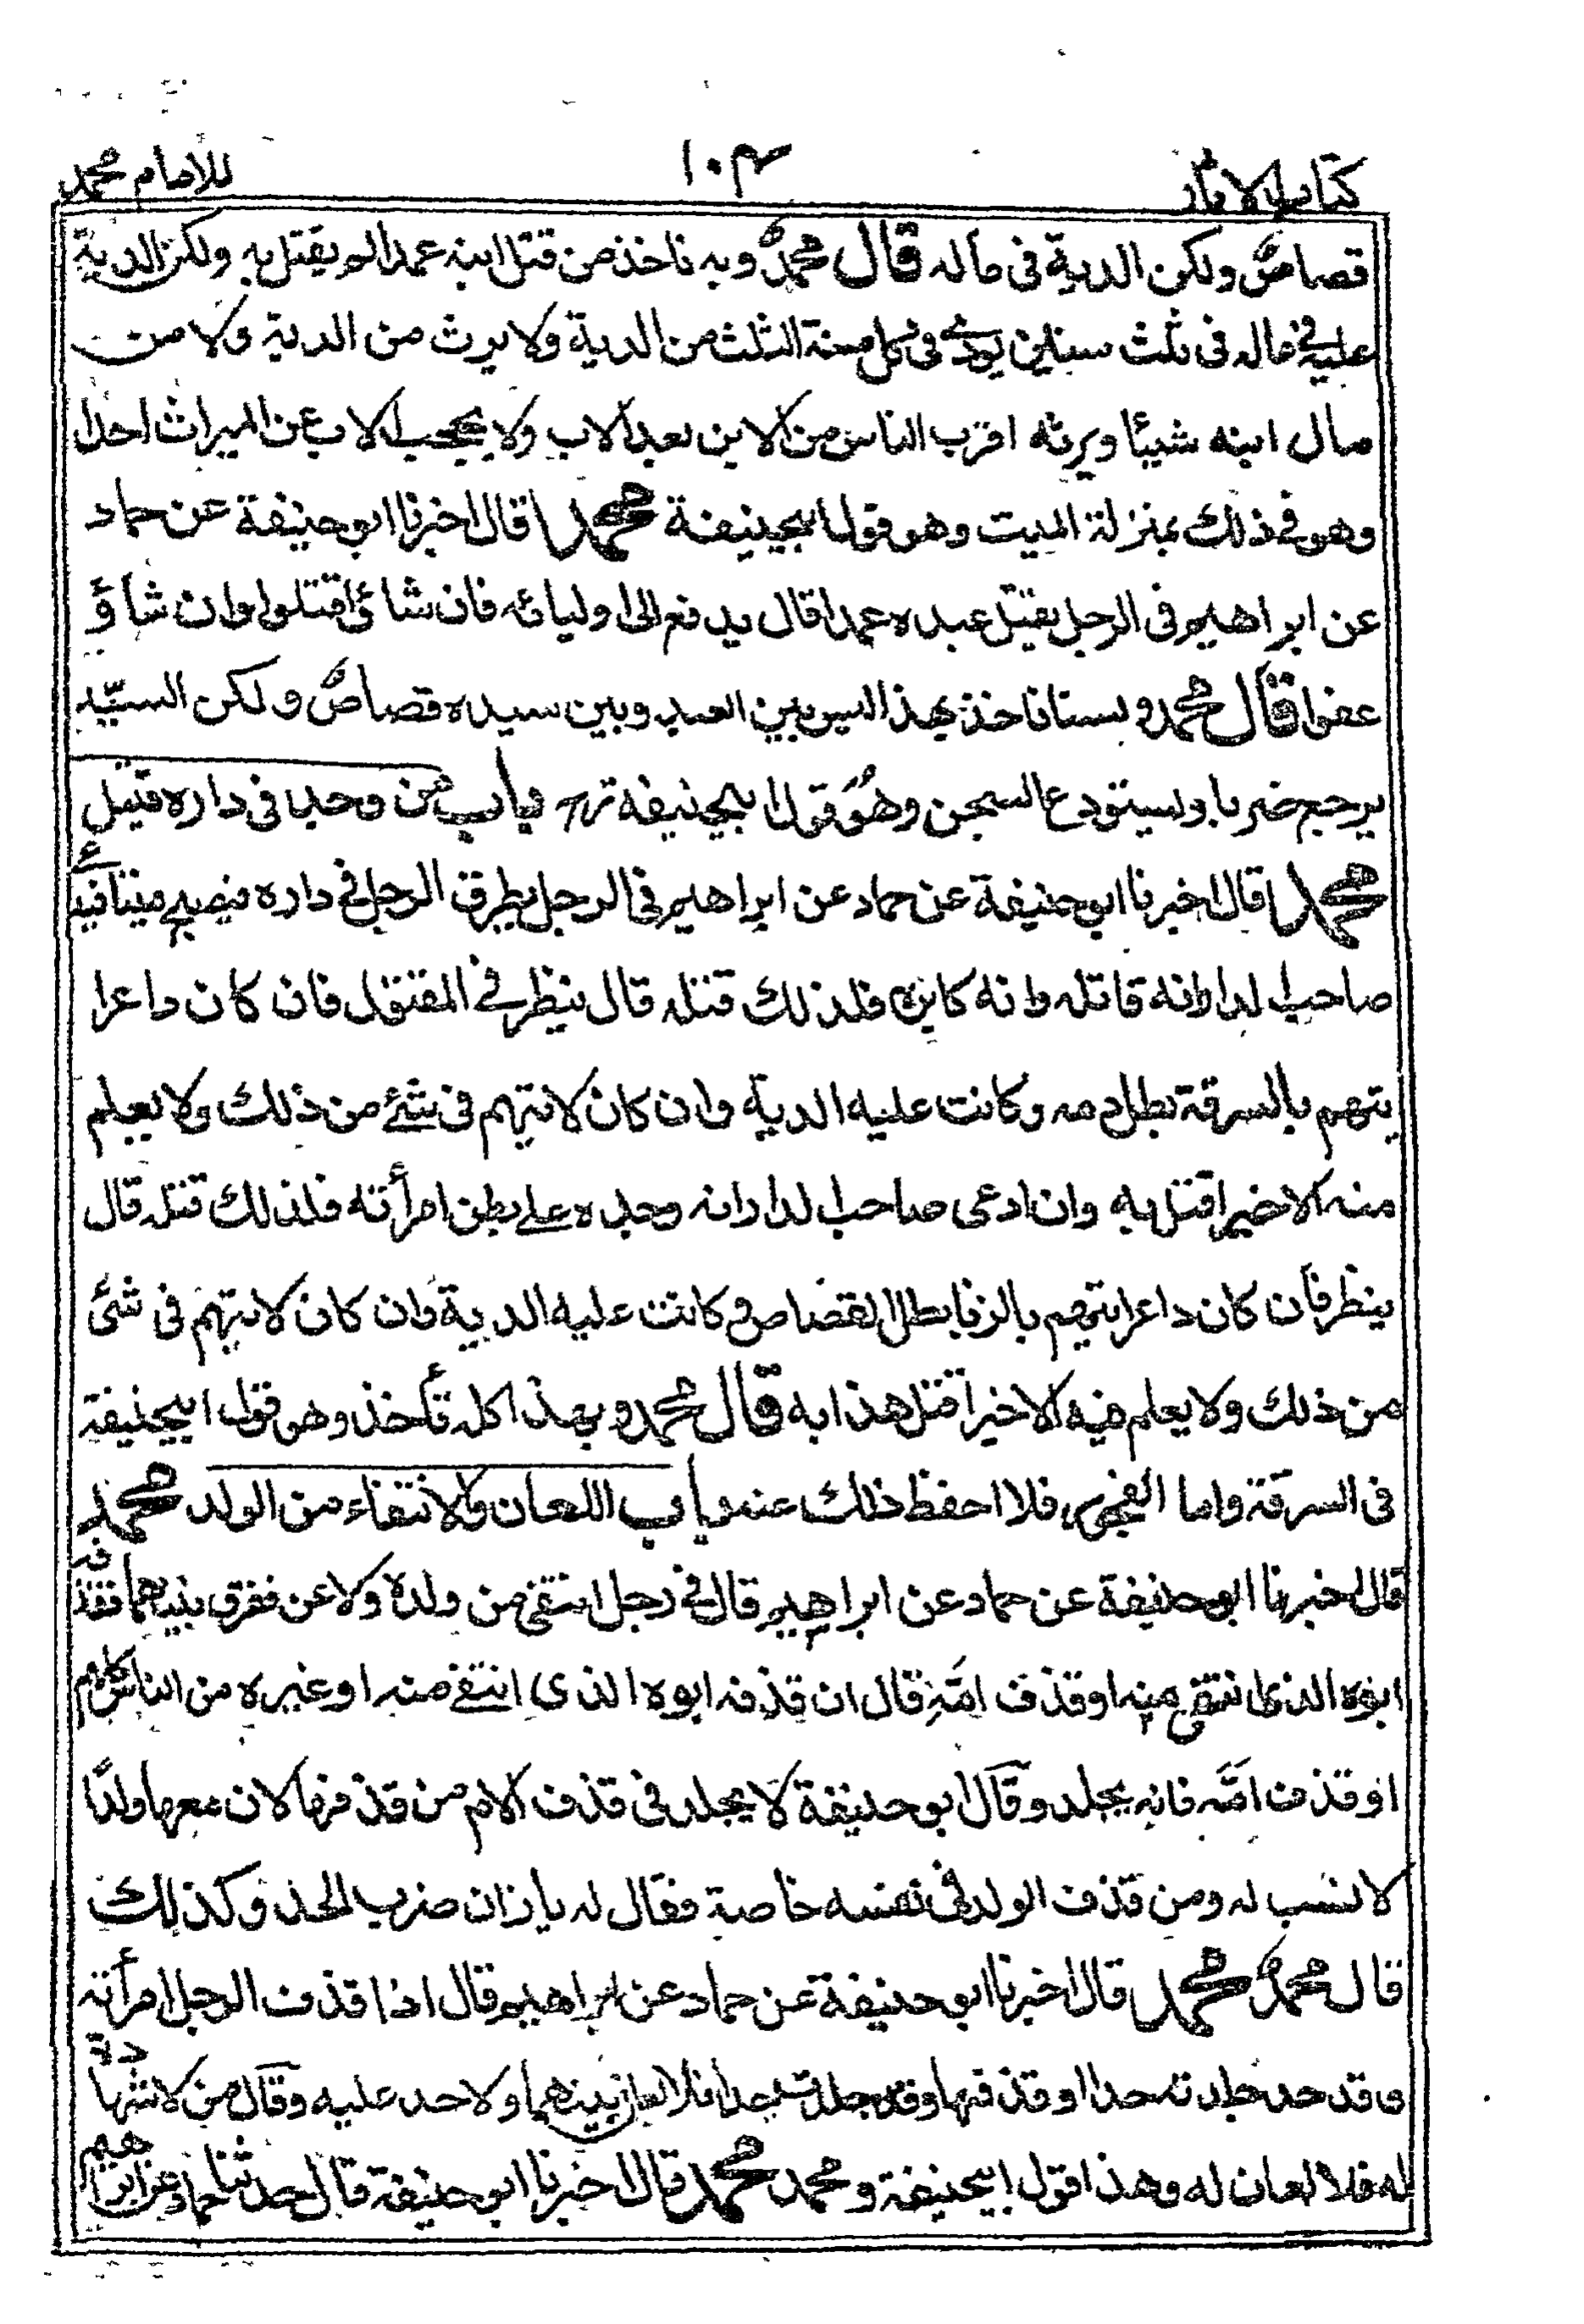 كتاب الاثار ١٠٣ للامام محمد
قصاص ولكن الدية فى ماله قال محمد وبه ناخذ من قتل ابنه عمدا لم يقتل به ولكن الدية
عليه فى ماله فى ثلث سنين يؤدى فى كل سنة الثلث من الدية ولا يرث من الدية ولا من
مال ابنه شيئا ويرثه اقرب الناس من الابن بعد الاب ولا يحجب الاب عن الميراث احدا
وهو فى ذلك بمنزلة الميت وهو قول ابيحنيفة محمد قال اخبرنا ابو حنيفة عن حماد
عن ابراهيم فى الرجل يقتل عبده عمدا قال يدفع الى اوليائه فان شاؤا قتلوا وان شاؤ
عفوا قال محمد ولسنا ناخذ بهذا ليس بين العبد وبين سيده قصاص ولكن السيّد
يوجع ضربا ويستودع السجن وهو قول ابيحنيفة باب من وجد فى داره قتيل
محمد قال اخبرنا ابو حنيفة عن حماد عن ابراهيم فى الرجل يطرق الرجل فى داره فيصبح ميتا
صاحب الدار انه قاتله وانه كابره فلذلك قتله قال ينظر فى المقتول فان كان داعرا
يتهم بالسرقة بطل دمه وكانت عليه الدية وان كان لا يتهم فى شئ من ذلك ولا يعلم
منه الا خيرا قتل به وان ادعى صاحب الدار انه وجده على بطن امرأته فلذلك قتله قال
ينظر فان كان داعرا يتهم بالزنا بطل القصاص وكانت عليه الدية وان كان لا يتهم فى شئ
من ذلك ولا يعلم فيه الا خيرا قتل هذا به قال محمد وبهذا كله نأخذ وهو قول ابيحنيفة
فى السرقة واما الفجور فلا احفظ ذلك عنه باب اللعان والانتفاء من الولد محمد
قال اخبرنا ابو حنيفة عن حماد عن ابراهيم قال فى رجل انتفى من ولده ولاعن ففرق بينهما فقذفه
ابوه الذى انتفى منه او قذف امّه قال ان قذفه ابوه الذى انتفى منه او غيره من الناس كلهم
او قذف امّه فانه يجلد وقال ابو حنيفة لا يجلد فى قذف الام من قذفها لان معها ولدا
لا نسب له ومن قذف الولد فى نفسه خاصة فقال له يا زان ضرب الحد وكذلك
قال محمد محمد قال اخبرنا ابو حنيفة عن حماد عن ابراهيم قال اذا قذف الرجل امرأته
وقد جلدت حدا او قذفها وقد جلد حدا فلا لعان بينهما ولا حد عليه وقال من لا شهادة
له فلا لعان له وهذا قول ابيحنيفة ومحمد محمد قال اخبرنا ابو حنيفة قال حدثنا حماد عن ابراهيم